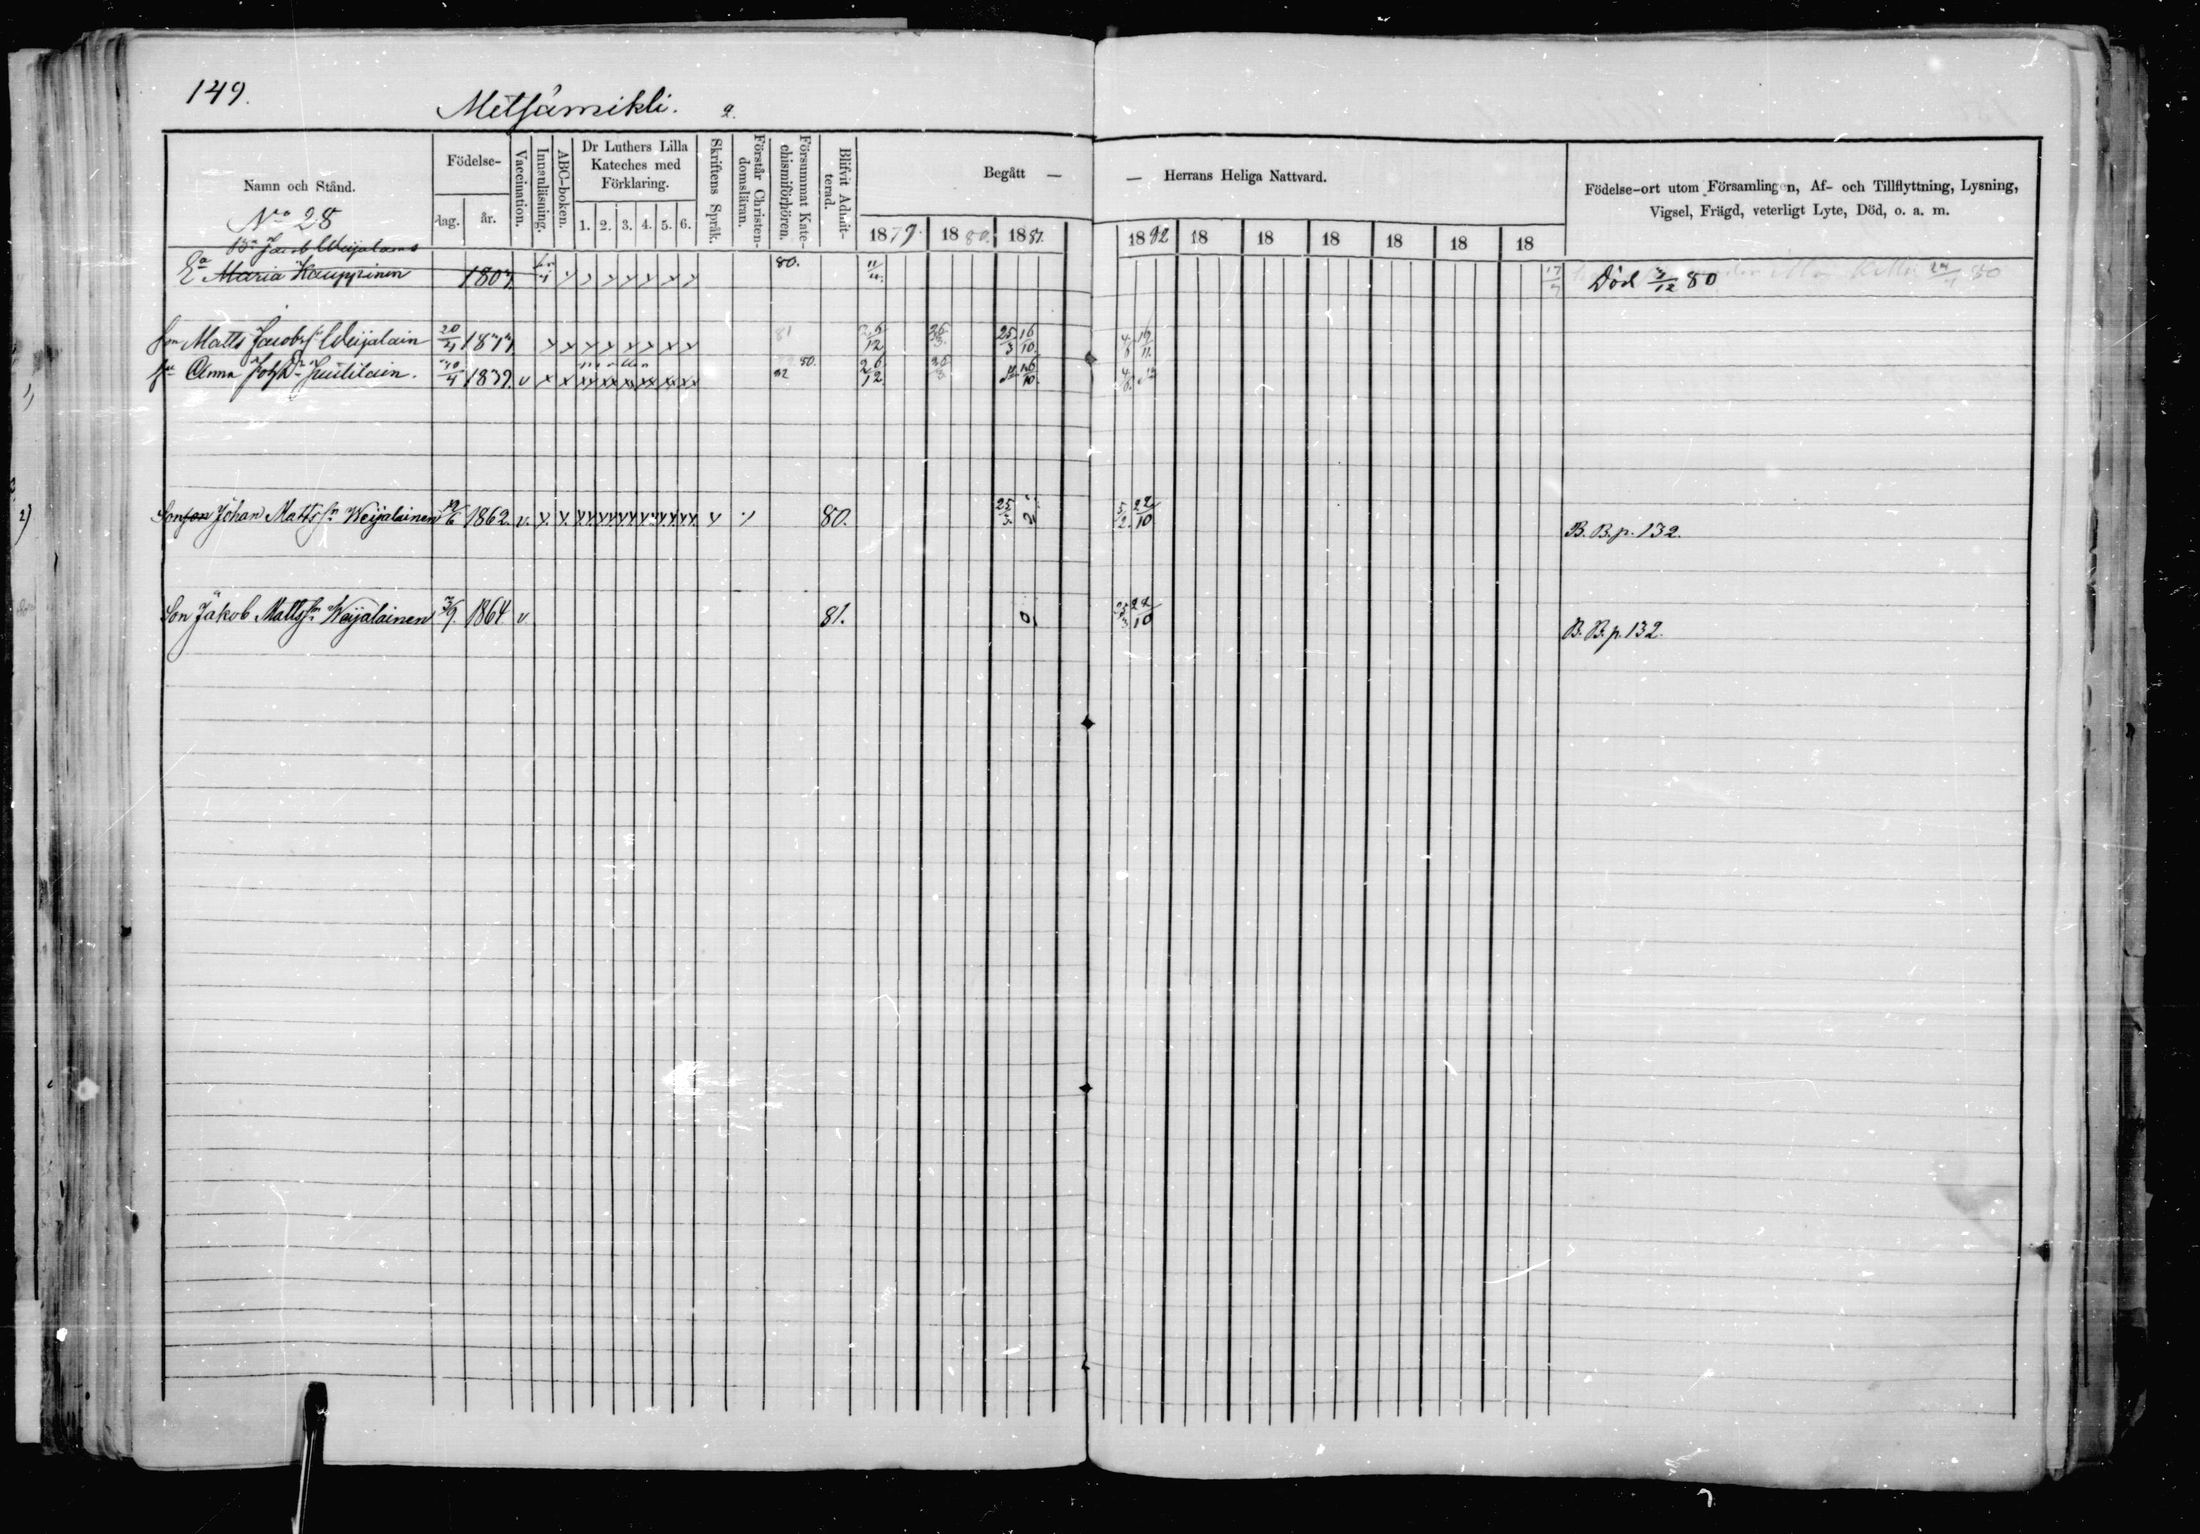 149.
Metsämikli.
Namn och Stånd.
Födelse-
dag.
år.
Vaccination.
Innanläsning.
ABC-boken.
Dr Luthers Lilla
Kateches med
Förklaring.
1. 2. 3. 4. 5. 6.
Skriftens Språk.
Förstår Christen-
domsläran.
Försummat Kate-
chismiförhören.
Blifvit Admit-
terad.
Begått — — Herrans Heliga Nattvard.
1879. 1880. 1881. 1882 18 18 18 18 18 18
Födelse-ort utom Församlingen, Af- och Tillflyttning, Lysning,
Vigsel, Frägd, veterligt Lyte, Död, o. a. m.
No 28
Jacob Weijalains
Ea Maria Kauppinen 1807. 80. Död 3/12 80
Son Matts Jacobsn Weijalain 81 26/12 26/3 25/3 16/10
Anna Johsdr Juutilain. 1839. v 80. 26/12 26/3 16/10.
Sonson Johan Mattssn Weijalainen 1862. v. 80. 25/3 5/2. 22/10 B. B. p. 132.
Son Jakob Mattssn Weijalainen 1864 v 81. 25/3 22/10 B. B. p. 132.